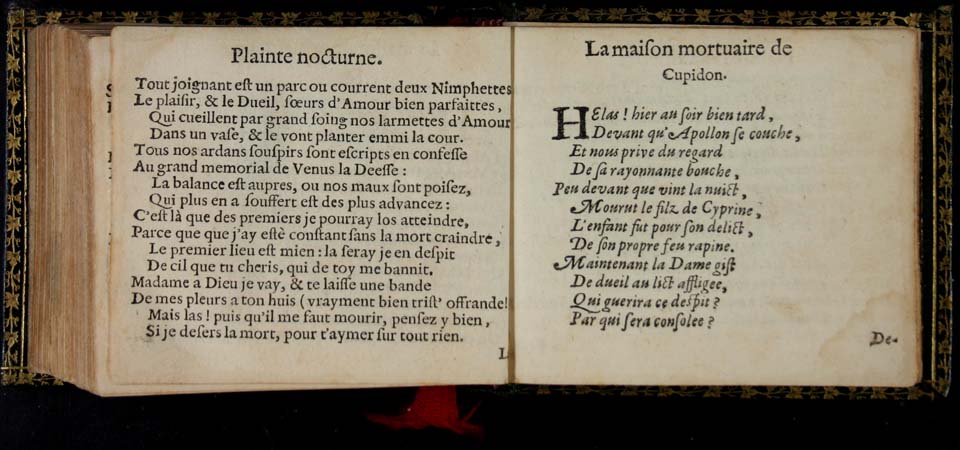 Plainte nocturne.
Tout joignant est un parc ou courrent deux Nimphettes
Le plaisir, & le Dueil, sœurs d'Amour bien parfaittes,
Qui cueillent par grand soing nos larmettes d'Amour
Dans un vase, & le vont planter emmi la cour.
Tous nos ardans souspirs sont escripts en confesse
Au grand memorial de Venus la Deesse:
La balance est aupres, ou nos maux sont poisez,
Qui plus en a souffert est des plus advancez:
C'est là que des premiers je pourray los atteindre,
Parce que que j'ay estè constant sans la mort craindre,
Le premier lieu est mien: la seray je en despit
De cil que tu cheris, qui de toy me bannit.
Madame a Dieu je vay, & te laisse une bande
De mes pleurs a ton huis (vrayment bien trist' offrande!
Mais las! puis qu'il me faut mourir, pensez y bien,
Si je desers la mort, pour t'aymer sur tout rien.
La maison mortuaire de
Cupidon.
HElas! hier au soir bien tard,
Devant qu'Apollon se couche,
Et nous prive du regard
De sa rayonnante bouche,
Peu devant que vint la nuict,
Mourut le filz de Cyprine,
L'enfant fut pour son delict,
De son propre feu rapine.
Maintenant la Dame gist
De dueil au lict affligee,
Qui guerira ce despit?
Par qui sera consolee?
De-